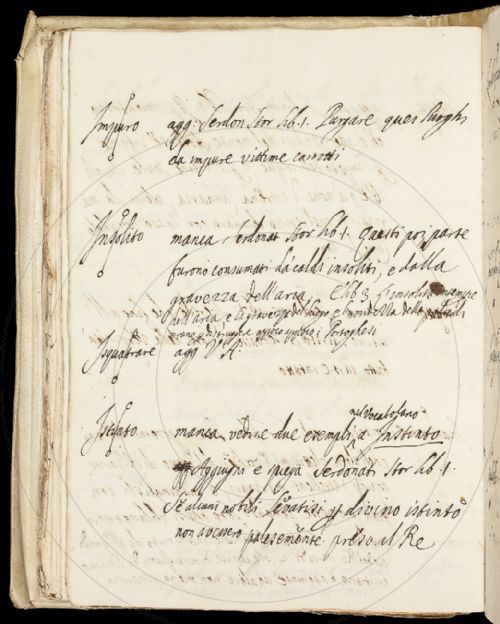 Impuro agg: Serdon Stor lib. 1. Purgare quei luoghi
da impure vittime corrotti
Insolito manca. Serdonat Stor lib 1. Questi poi parte
furono consumati da caldi insoliti, e dalla
gravezza dell'aria. E lib 3
dell'aria e la gravezza del luogo e
Portoghesi
Isquatrare agg V. A.
Istinto manca, vedine due esempli nel Vocabolario a Instinto
Aggiugni e spiega Serdonati Stor lib. 1.
Se alcuni nobili divino istinto
non avessero palesemẽte preso il Re